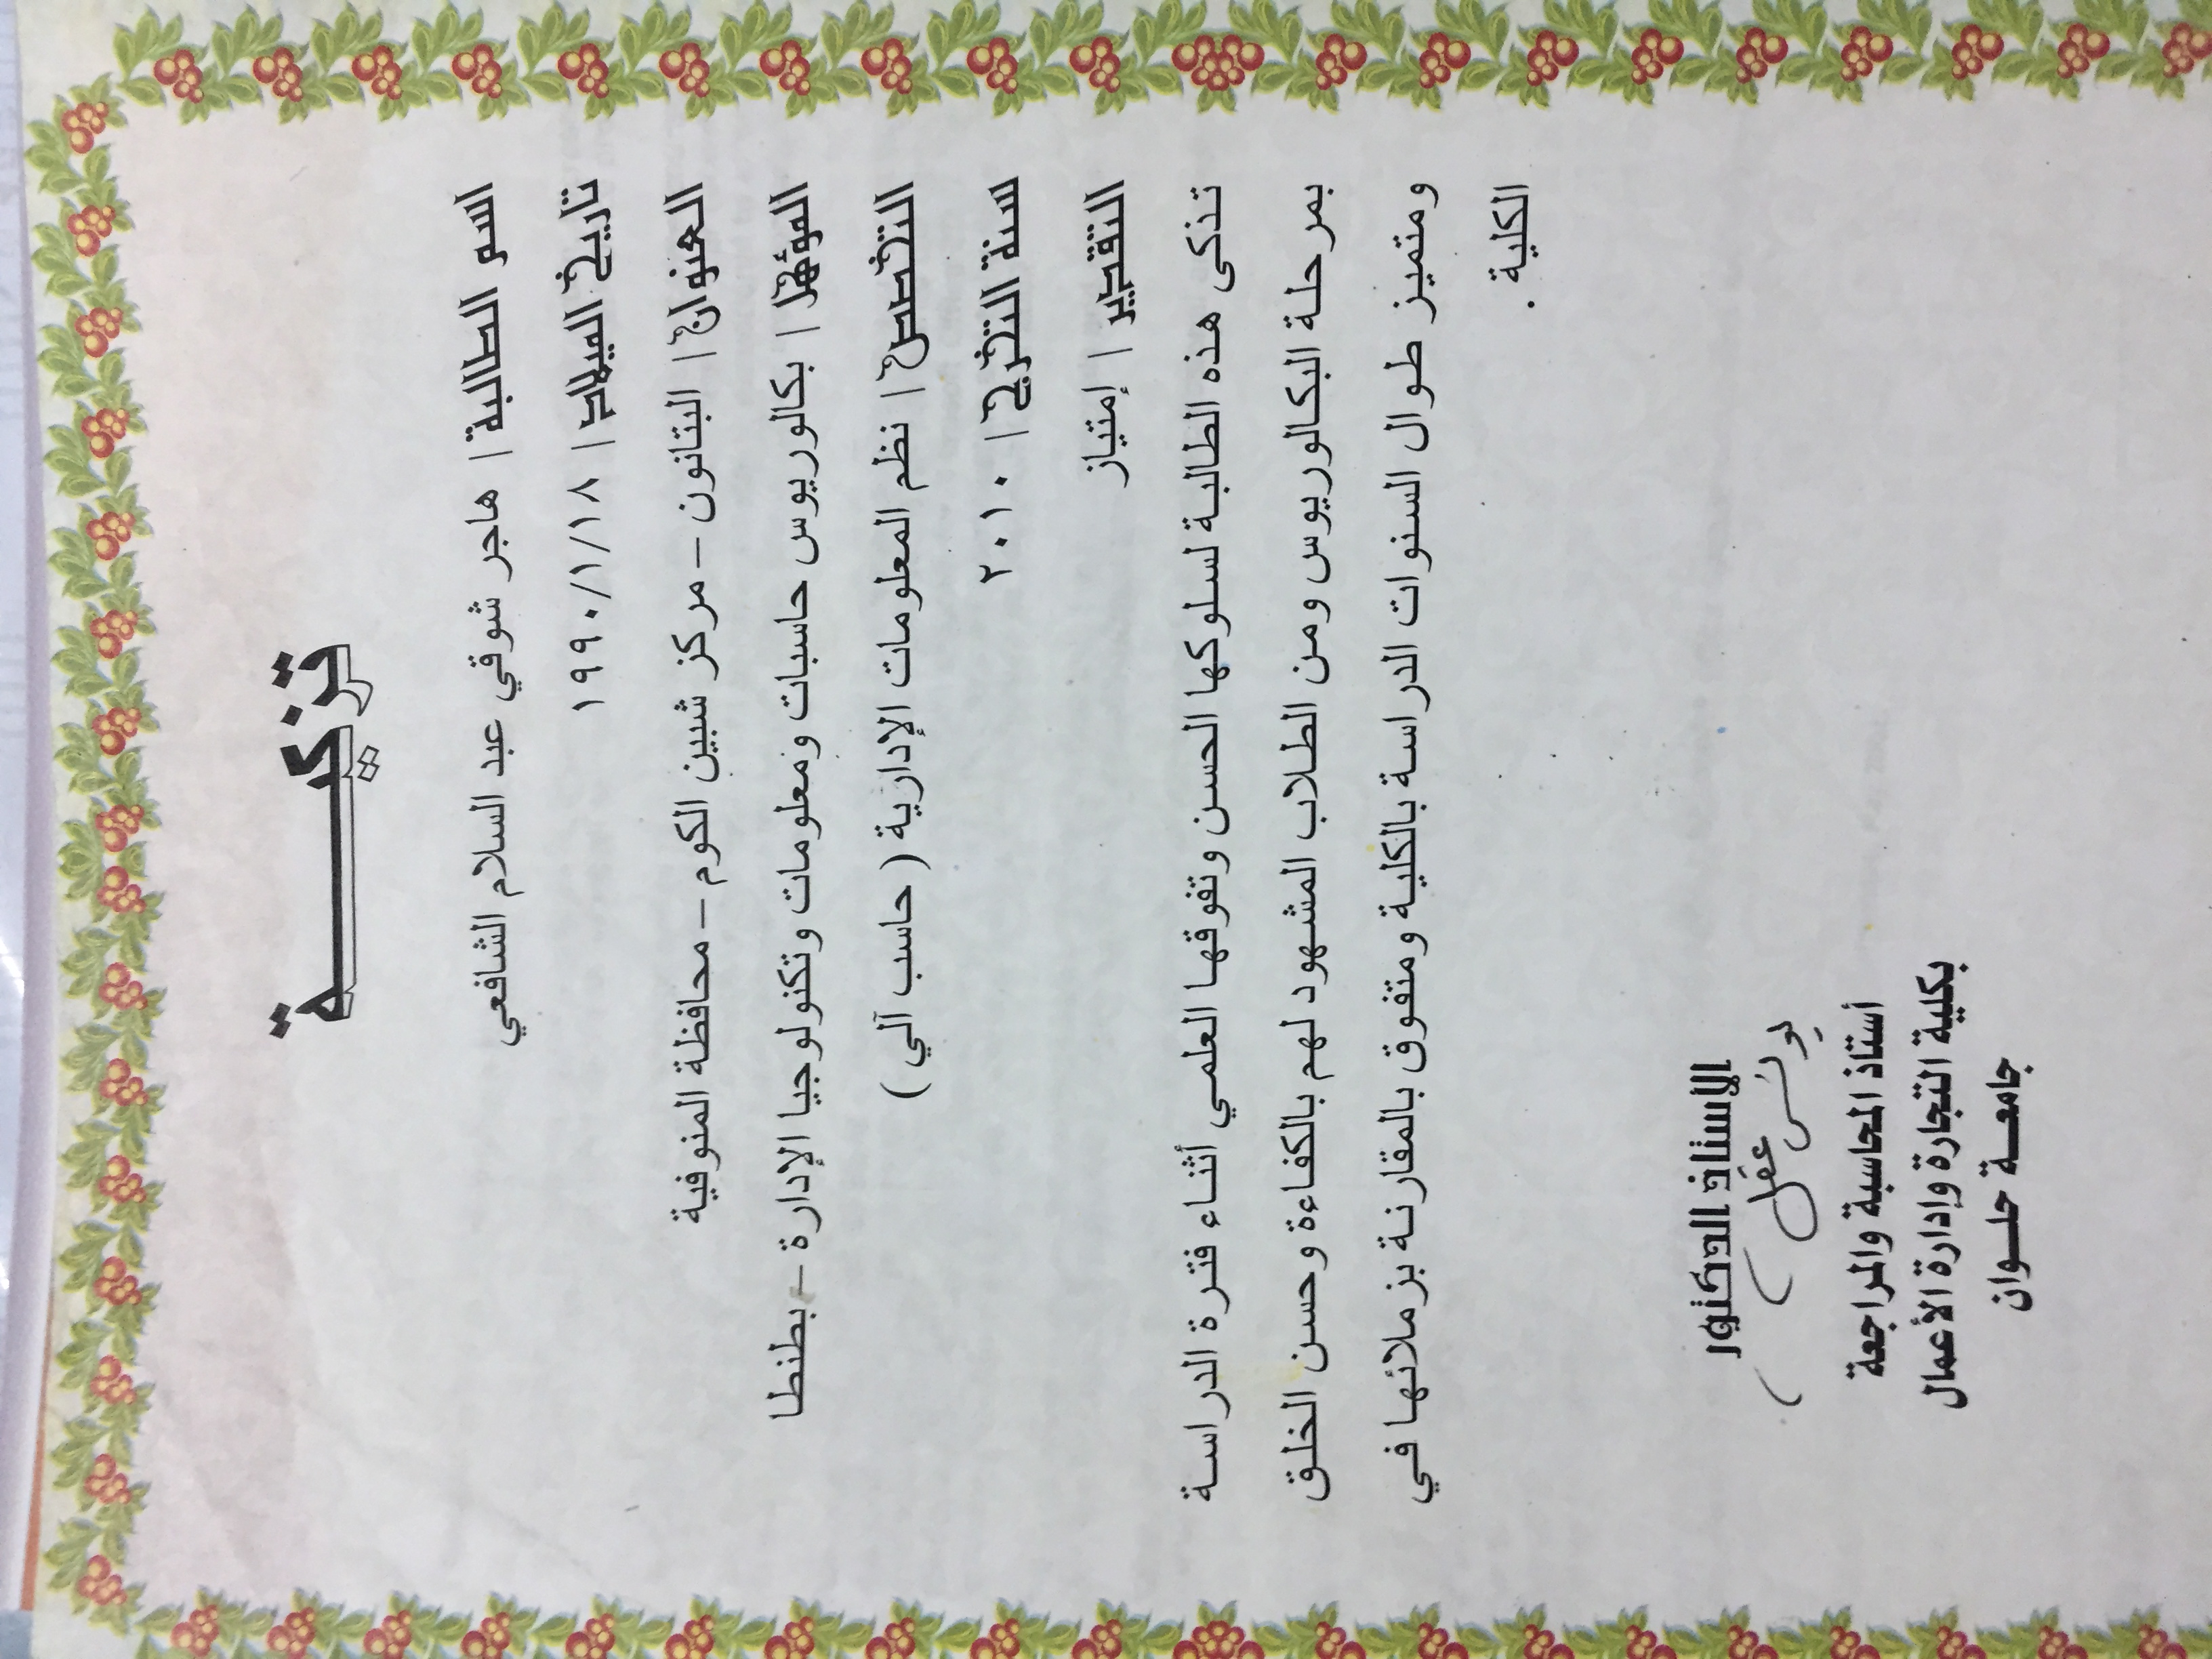 تزكيـــــة
اسم الطالبة / هاجر شوقي عبد السلام الشافعي
تاريخ الميلاد / ١٩٩٠/١/١٨
العنوان / البتانون – مركز شبين الكوم – محافظة المنوفية
المؤهل / بكالوريوس حاسبات ومعلومات وتكنولوجيا الإدارة – بطنطا
التخصص / نظم المعلومات الإدارية ( حاسب آلي )
سنة التخرج / ٢٠١٠
التقدير / إمتياز
تذكى هذه الطالبة لسلوكها الحسن وتفوقها العلمي أثناء فترة الدراسة
بمرحلة البكالوريوس ومن الطلاب المشهود لهم بالكفاءة وحسن الخلق
ومتميز طوال السنوات الدراسة بالكلية ومتفوق بالمقارنة بزملائها في
الكلية .
الأستاذ الدكتور
يونس عقل
أستاذ المحاسبة والمراجعة
بكلية التجارة وإدارة الأعمال
جامعـة حلـوان